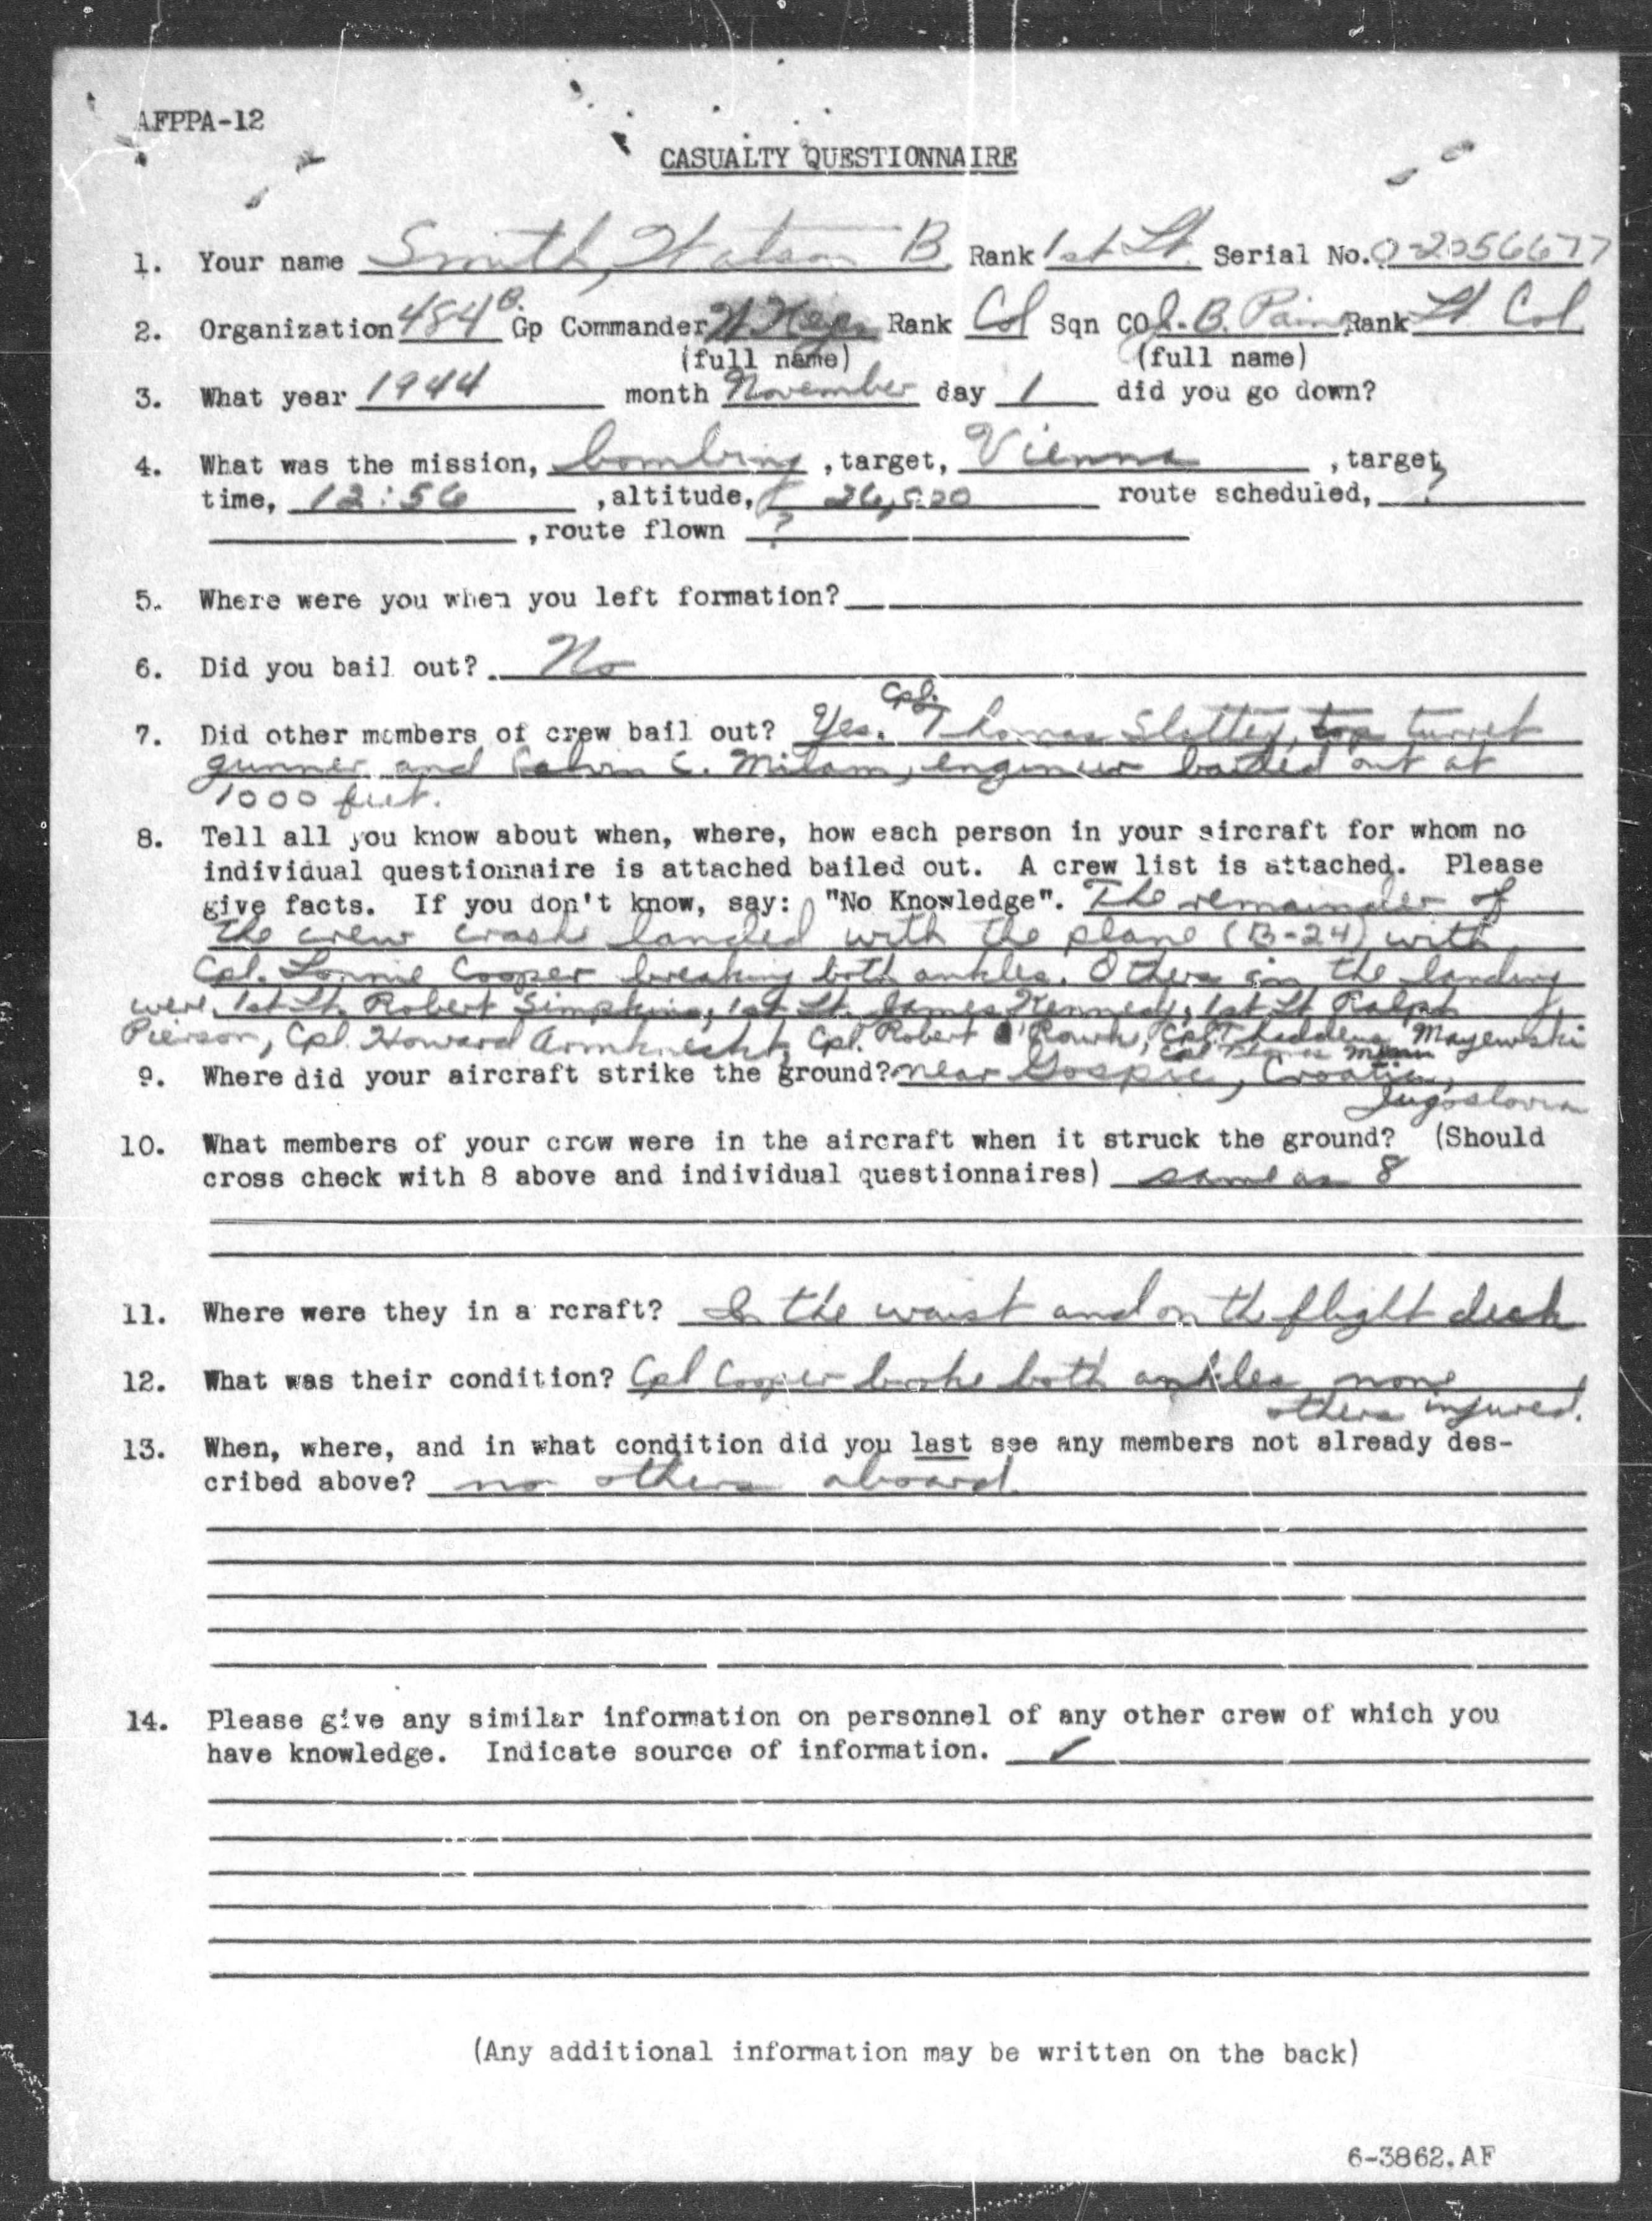 AFPPA-12
CASUALTY QUESTIONNAIRE
1. Your name Smith, Watson B. Rank 1st Lt. Serial No. O-2056677
2. Organization 484 B. Gp Commander Rank Col Sqn CO J. B. Rank Lt Col
(full name) (full name)
3. What year 1944 month November day 1 did you go down?
4. What was the mission, bombing ,target, Vienna ,target
time, 12:56 ,altitude, 26,000 route scheduled, ?
,route flown ?
5. Where were you when you left formation?
6. Did you bail out? No
Cpl.
7. Did other members of crew bail out? Yes. Thomas Slattey, top turret
gunner, and Calvin C. Milam, engineer bailed out at
1000 feet.
8. Tell all you know about when, where, how each person in your aircraft for whom no
individual questionnaire is attached bailed out. A crew list is attached. Please
give facts. If you don't know, say: "No Knowledge". The remainder of
the crew crash landed with the plane (B-24) with
Cpl. Lonnie Cooper breaking both ankles. Others in the landing
were 1st Lt. Robert Simpkins, 1st Lt. James Kennedy, 1st Lt Ralph
Pierson, Cpl. Howard Armknecht, Cpl. Robert O'Rourk, Cpl. Thaddeus Mayewski
Cpl Thomas
9. Where did your aircraft strike the ground? near Gospic, Croatia,
Jugoslovia
10. What members of your crew were in the aircraft when it struck the ground? (Should
cross check with 8 above and individual questionnaires) same as 8
11. Where were they in a rcraft? In the waist and on the flight deck
12. What was their condition? Cpl Cooper broke both ankles none
others injured.
13. When, where, and in what condition did you last see any members not already des-
cribed above? no others aboard.
14. Please give any similar information on personnel of any other crew of which you
have knowledge. Indicate source of information. ✓
(Any additional information may be written on the back)
6-3862,AF